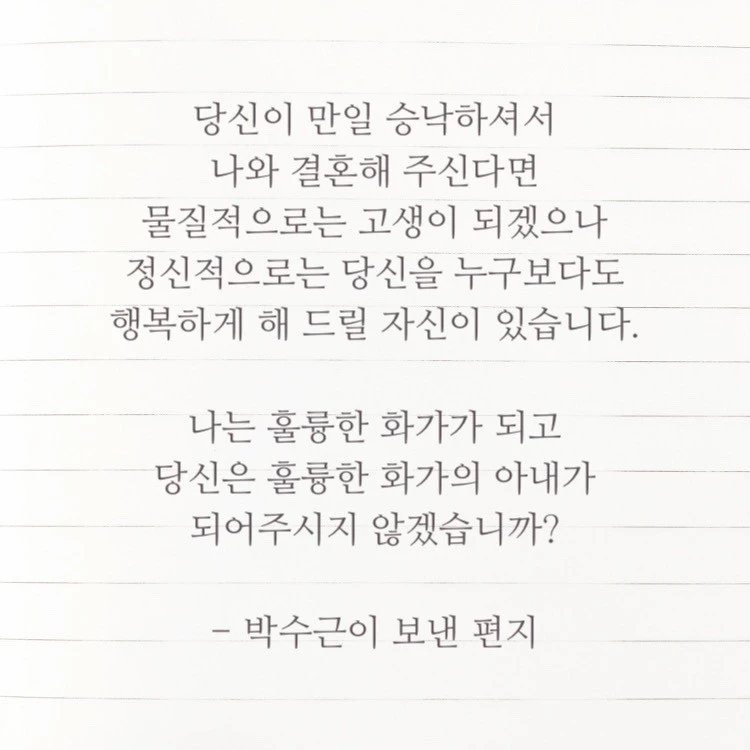 당신이 만일 승낙하셔서
나와 결혼해 주신다면
물질적으로는 고생이 되겠으나
정신적으로는 당신을 누구보다도
행복하게 해 드릴 자신이 있습니다.
나는 훌륭한 화가가 되고
당신은 훌륭한 화가의 아내가
되어주시지 않겠습니까?
- 박수근이 보낸 편지